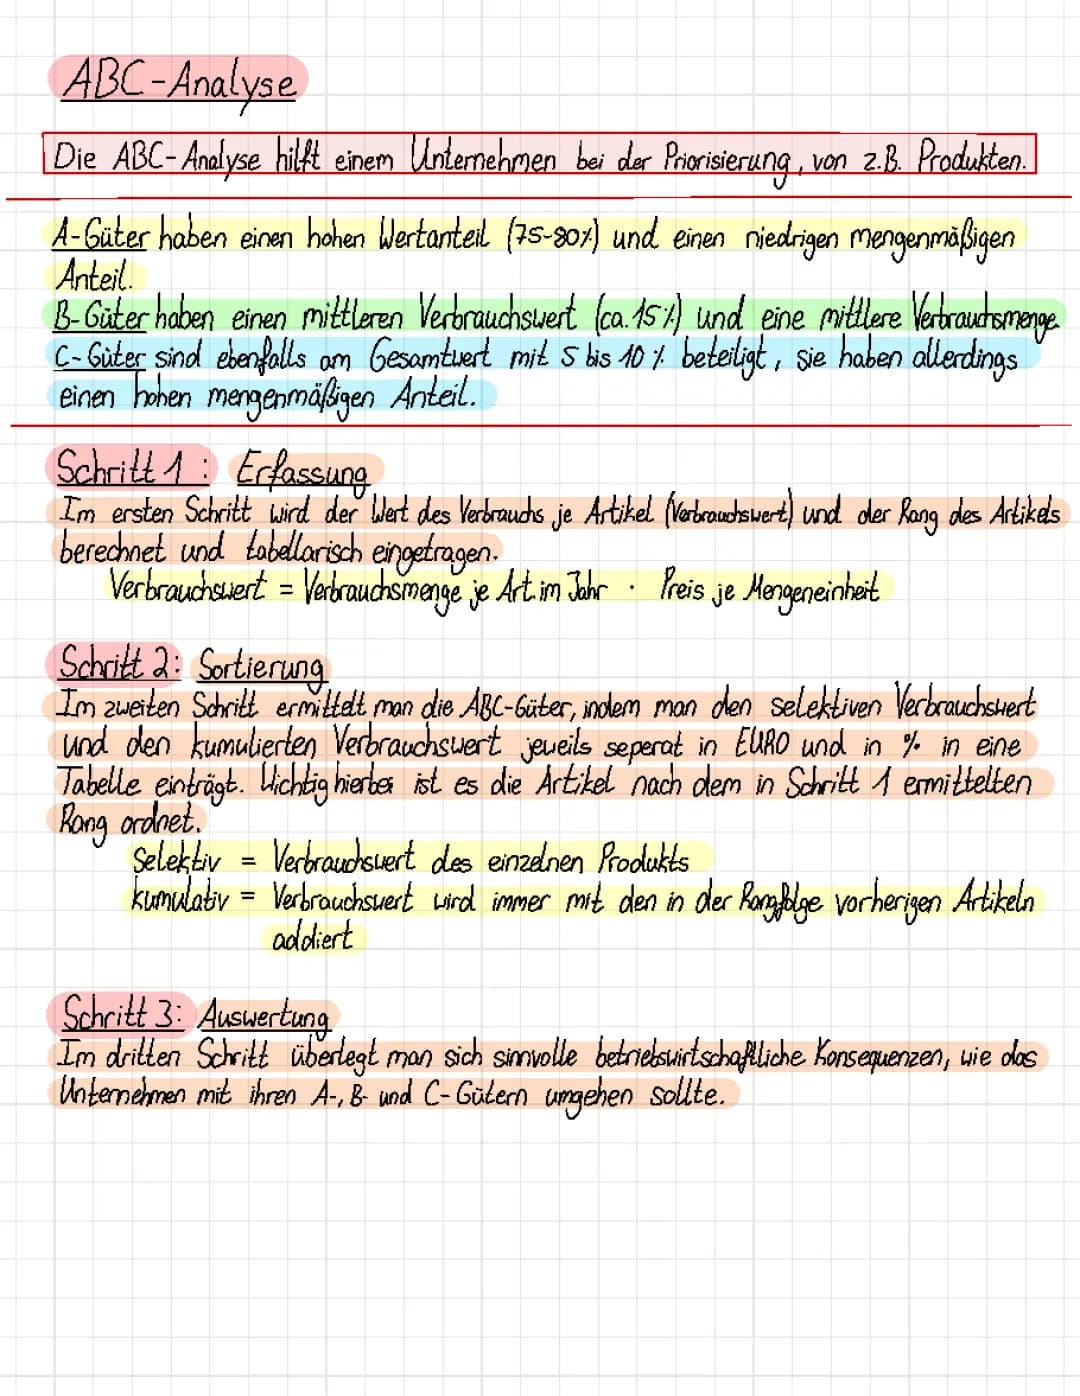 ABC-Analyse
Die ABC-Analyse hilft einem Unternehmen bei der Priorisierung, von z.B. Produkten.
A-Güter haben einen hohen Wertanteil (75-80%) und einen niedrigen mengenmäßigen
Anteil.
B-Güter haben einen mittleren Verbrauchswert (ca. 15%) und eine mittlere Verbrauchsmenge
C-Güter sind ebenfalls am Gesamtwert mit 5 bis 10 % beteiligt, sie haben allerdings
einen hohen mengenmäßigen Anteil.
Schritt 1: Erfassung
Im ersten Schritt wird der Wert des Verbrauchs je Artikel (Verbrauchswert) und der Rang des Artikels
berechnet und tabellarisch eingetragen.
Verbrauchswert = Verbrauchsmenge je Art. im Jahr · Preis je Mengeneinheit
Schritt 2: Sortierung
Im zweiten Schritt ermittelt man die ABC-Güter, indem man den selektiven Verbrauchswert
und den kumulierten Verbrauchswert jeweils seperat in EURO und in % in eine
Tabelle einträgt. Wichtig hierbei ist es die Artikel nach dem in Schritt 1 ermittelten
Rang ordnet.
Selektiv = Verbrauchswert des einzelnen Produkts
kumulativ = Verbrauchswert wird immer mit den in der Rangfolge vorherigen Artikeln
addiert
Schritt 3: Auswertung
Im dritten Schritt überlegt man sich sinnvolle betriebswirtschaftliche Konsequenzen, wie das
Unternehmen mit ihren A-, B- und C-Gütern umgehen sollte.